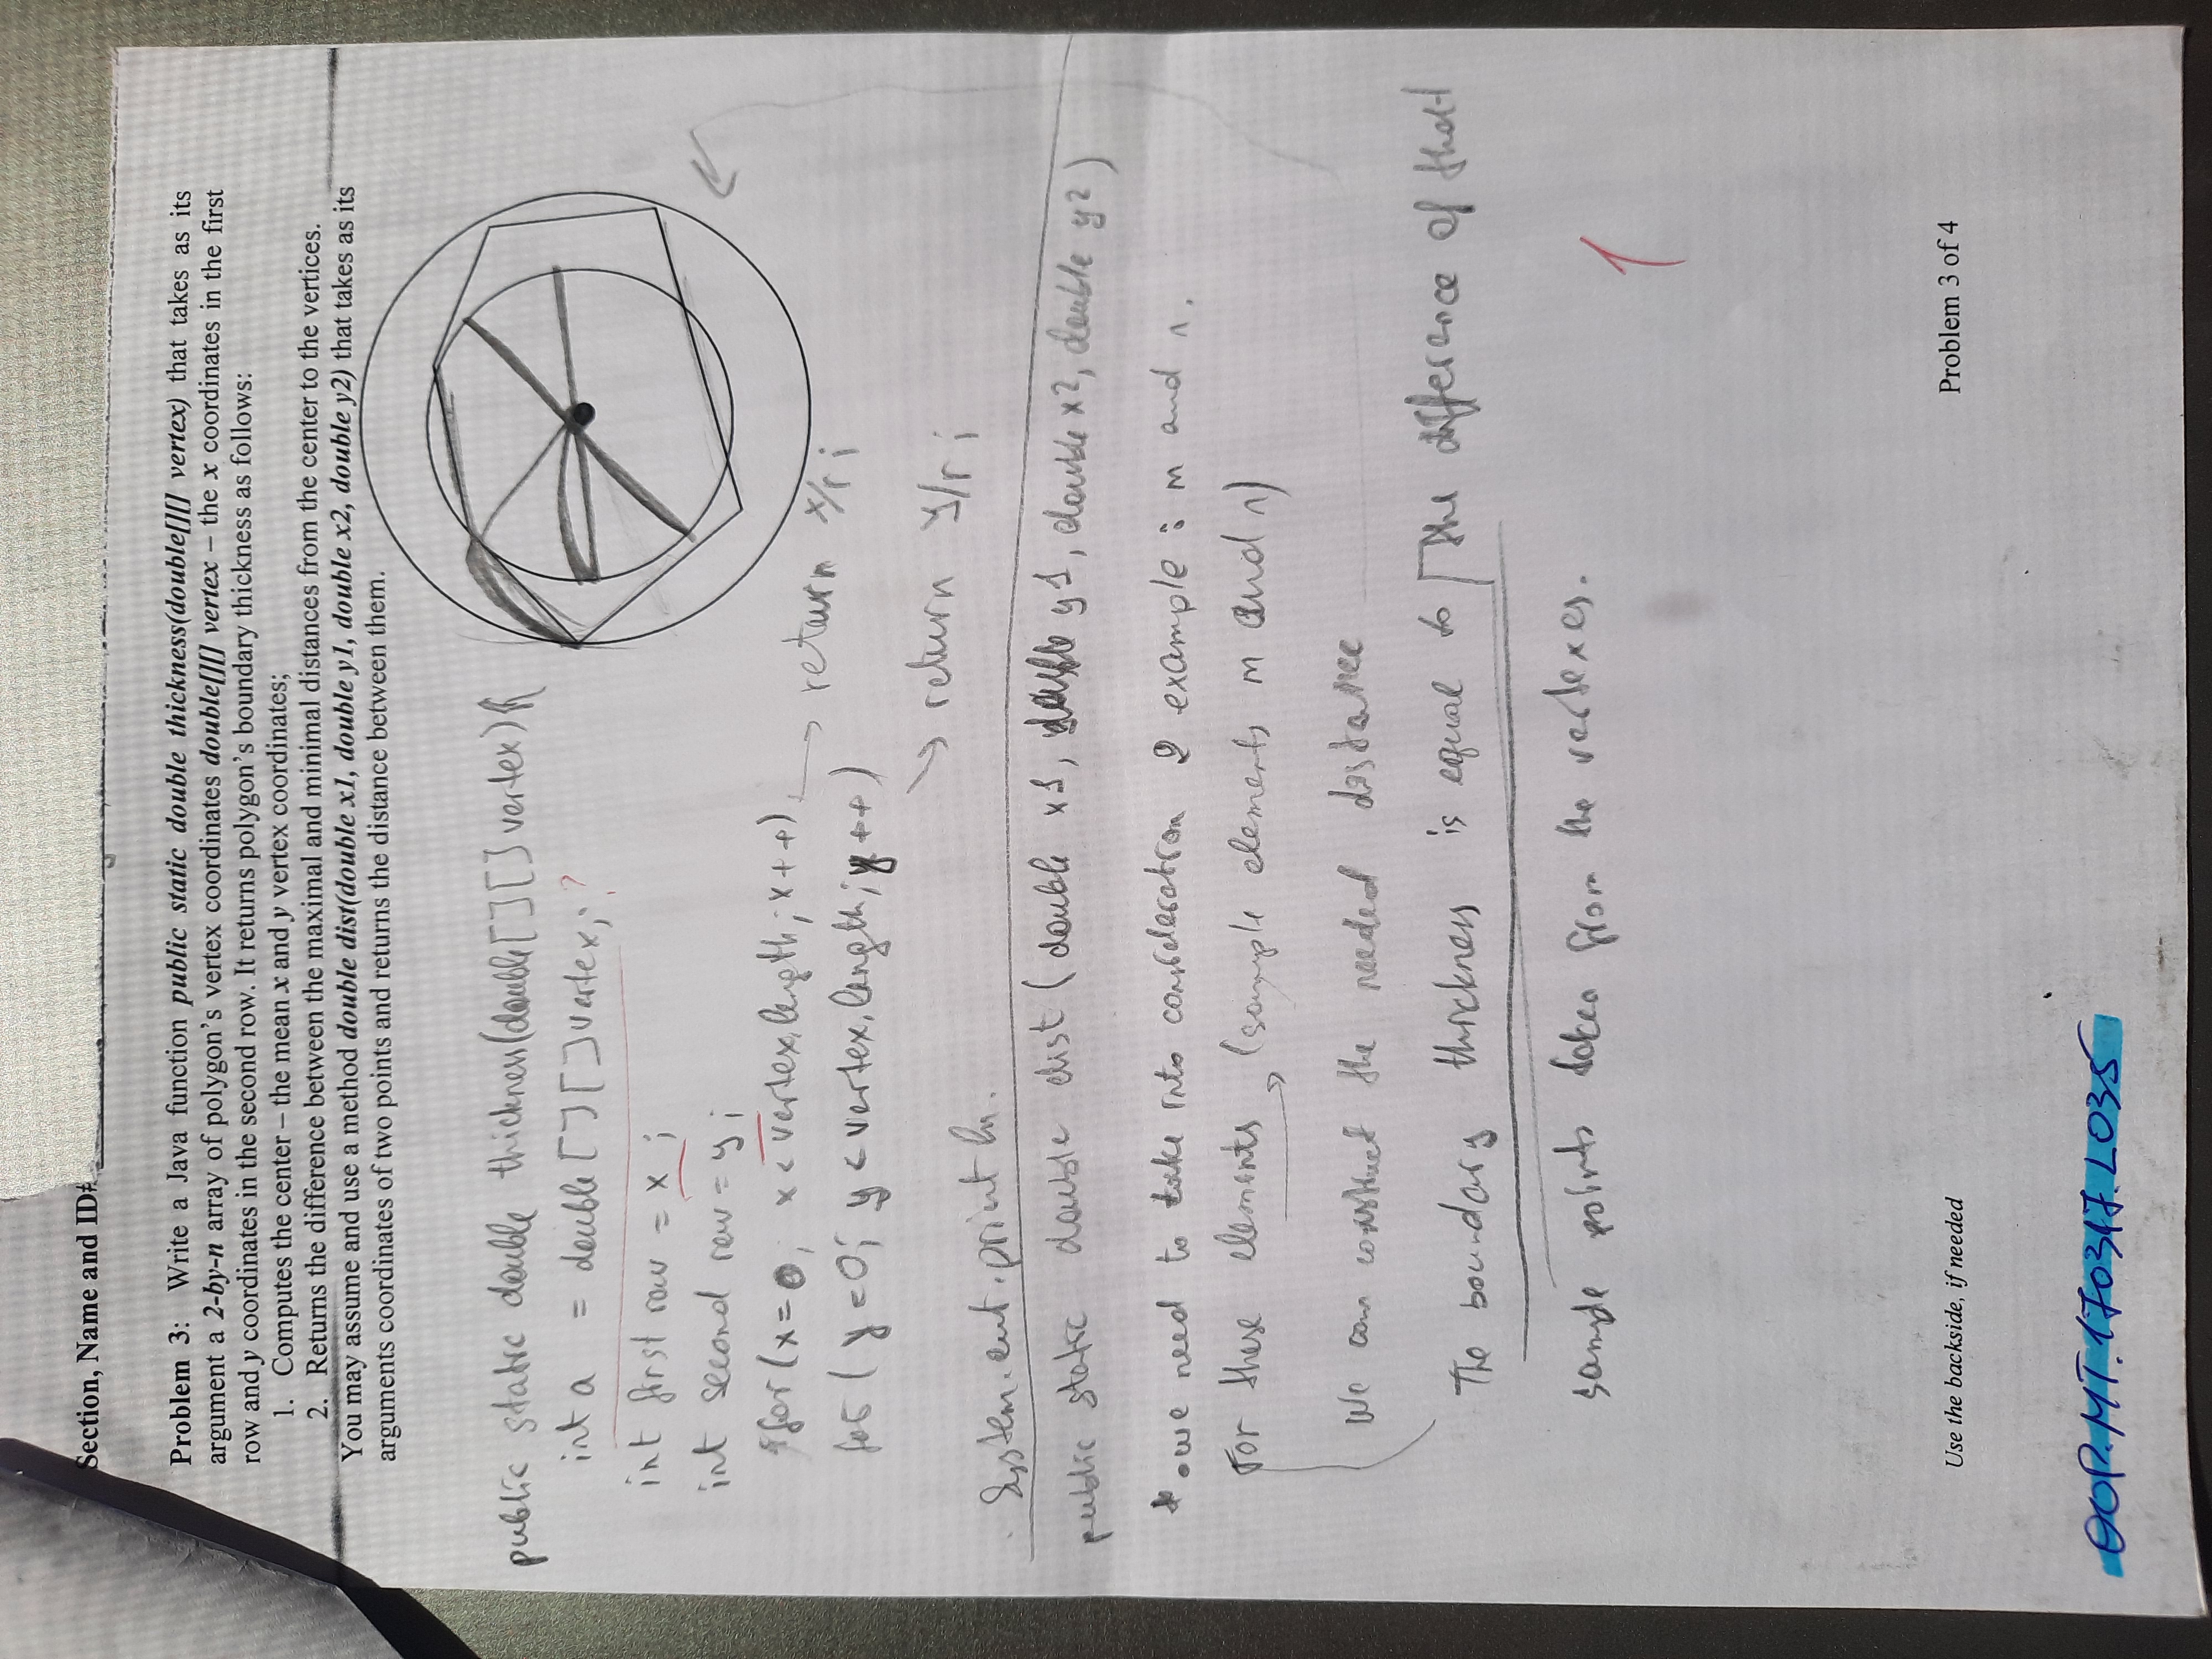 Section, Name and ID#
Problem 3: Write a Java function public static double thickness(double[][] vertex) that takes as its
argument a 2-by-n array of polygon's vertex coordinates double[][] vertex – the x coordinates in the first
row and y coordinates in the second row. It returns polygon's boundary thickness as follows:
1. Computes the center – the mean x and y vertex coordinates;
2. Returns the difference between the maximal and minimal distances from the center to the vertices.
You may assume and use a method double dist(double x1, double y1, double x2, double y2) that takes as its
arguments coordinates of two points and returns the distance between them.
public static double thickness(double[][] vertex){
int a = double[][] vertex; ?
int first row = x;
int second row = y;
for (x=0; x < vertex.length; x++) → return x/r;
for (y=0; y < vertex.length; y++)
→ return y/r;
System.out.println.
public static double dist (double x1, double y1, double x2, double y2)
* we need to take into consideration 2 example : m and n.
For these elements → (sample elements m and n)
We can construct the needed distance
The boundary thickness is equal to the difference of that
sample points taken from the vertexes.
1
Use the backside, if needed
Problem 3 of 4
OOP.MT.170317.L035